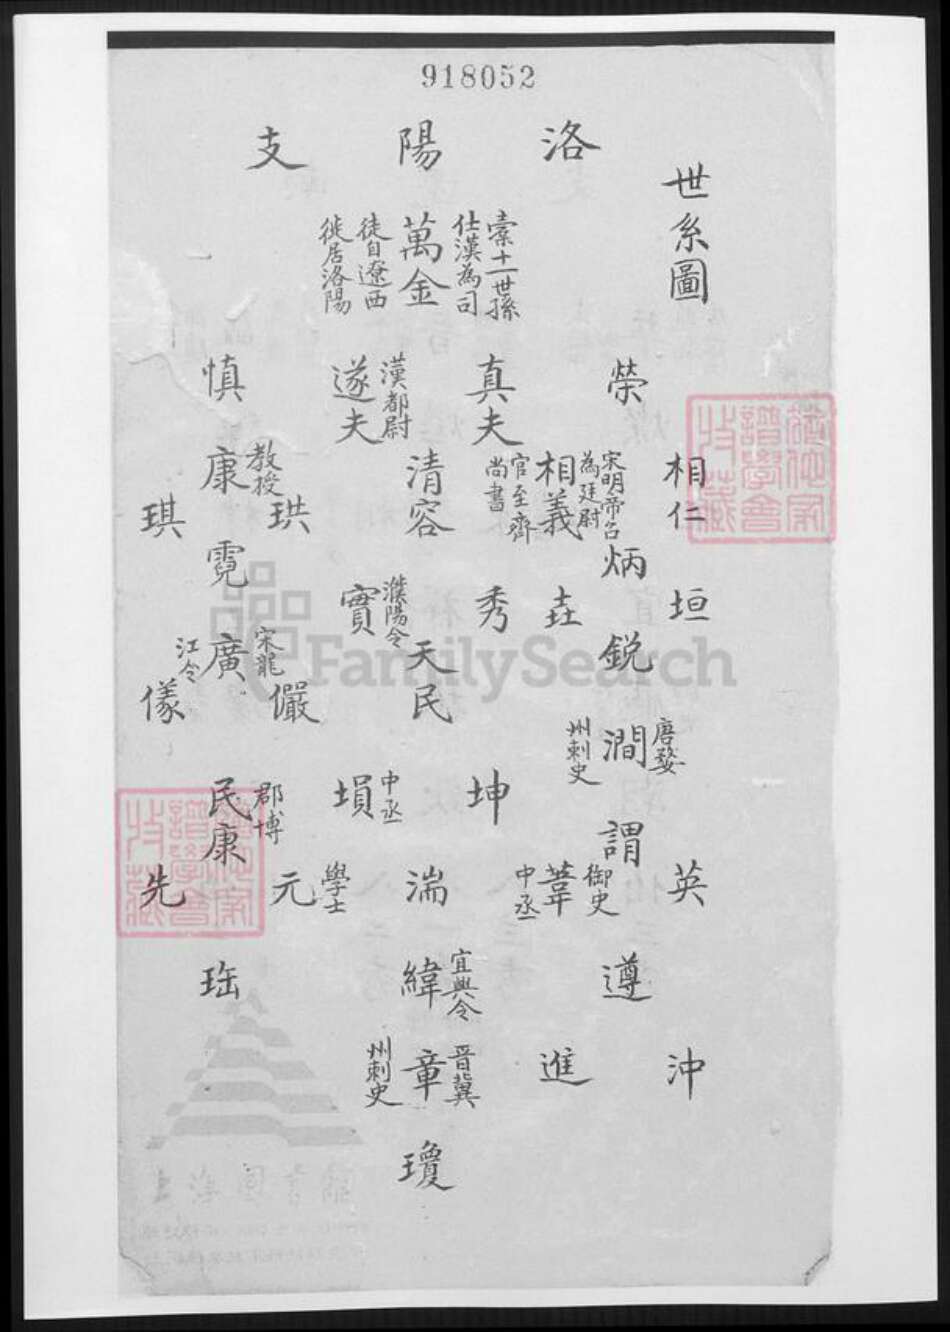 918052
洛陽支
世系圖
索十一世孫
仕漢為司
萬金
徒自遼西
徙居洛陽
榮
真夫
漢都尉
遂夫
慎
相仁
宋明帝召
為廷尉
相義
官至齊
尚書
清容
教授
康
珙
琪
炳
霓
垣
垚
秀
濮陽令
實
銳
天民
宋龍
廣
江令
儼
儀
唐婺
澗
州刺史
坤
中丞
塤
郡博
民康
謂
英
御史
葦
中丞
湍
學士
元
先
遵
宜興令
緯
珤
沖
進
晉冀
章
州刺史
瓊
FamilySearch